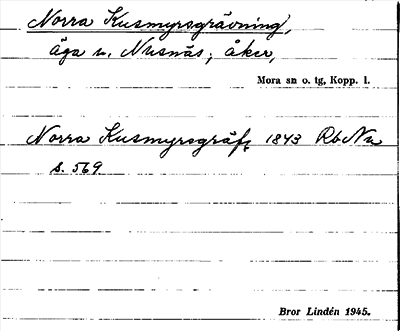 Norra Kusmyrsgrävning,
äga u. Nusnäs; åker,
Mora sn o. tg, Kopp. l.
Norra Kusmyrsgräfn 1843 Rb Nu
s. 569
Bror Lindén 1945.